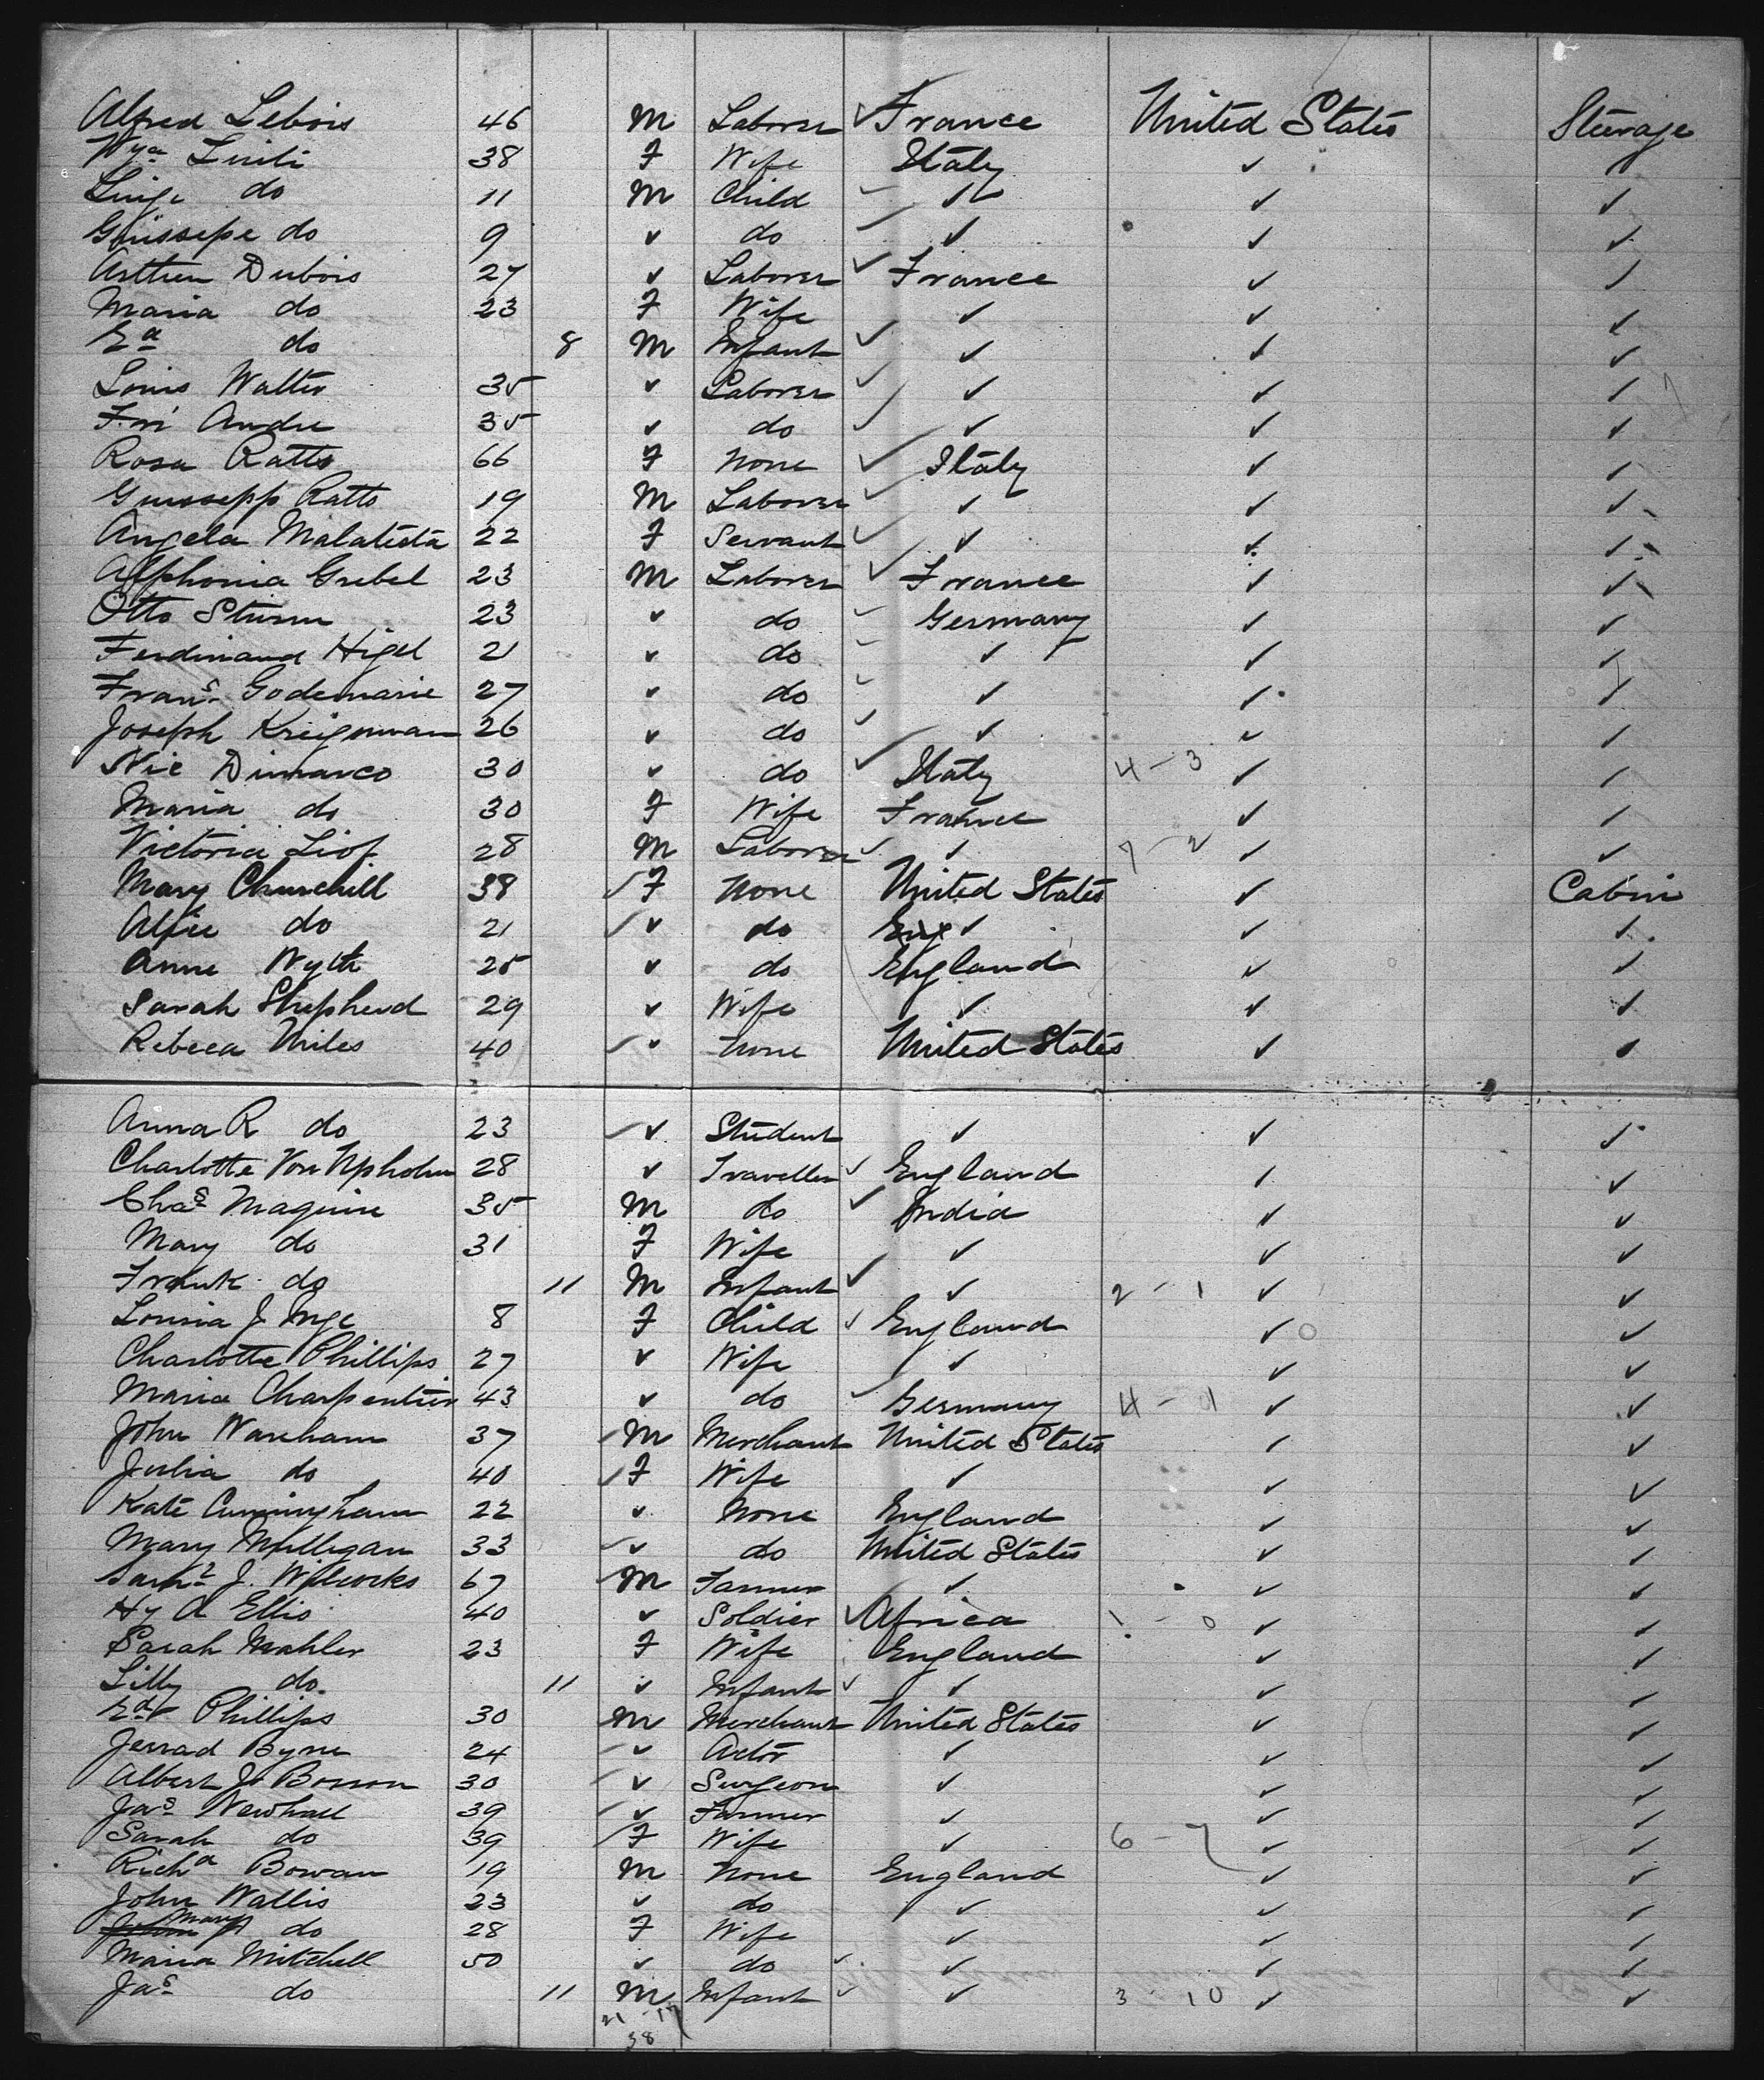 Alfred Lebois 46 M Laborer ✓ France United States Steerage
38 F Wife Italy ✓ ✓
Luigi do 11 M Child ✓ ✓ ✓ ✓
Guissepe do 9 ✓ do ✓ ✓ ✓ ✓
Arthur Dubois 27 ✓ Laborer ✓ France ✓ ✓
Maria do 23 F Wife ✓ ✓ ✓
Ed do 8 M Infant ✓ ✓ ✓ ✓
Louis Walter 35 ✓ Laborer ✓ ✓ ✓ ✓
Andre 35 ✓ do ✓ ✓ ✓ ✓
Rosa Ratto 66 F None ✓ Italy ✓ ✓
Guissepp Ratto 19 M Laborer ✓ ✓ ✓ ✓
Angela Malatesta 22 F Servant ✓ ✓ ✓ ✓
Grebel 23 M Laborer ✓ France ✓ ✓
Otto Sturm 23 ✓ do ✓ Germany ✓ ✓
Ferdinand Higel 21 ✓ do ✓ ✓ ✓ ✓
Frans Godemarie 27 ✓ do ✓ ✓ ✓ ✓
Joseph 26 ✓ do ✓ ✓ ✓ ✓
Nic Dimarco 30 ✓ do ✓ Italy 4-3 ✓ ✓
Maria do 30 F Wife France ✓ ✓
Victoria 28 M Laborer ✓ ✓ 7-2 ✓ ✓
Mary Churchill 38 ✓ F None United States ✓ Cabin
do 21 ✓ ✓ do Eng ✓ ✓ ✓
Anne 25 ✓ do England ✓ ✓
Sarah Shepherd 29 ✓ Wife ✓ ✓ ✓
Rebeca Miles 40 ✓ ✓ None United States ✓ ✓
Anna R do 23 ✓ ✓ Student ✓ ✓ ✓
Charlotte Von 28 ✓ Traveller ✓ England ✓ ✓
Chas Maguire 35 M do ✓ India ✓ ✓
Mary do 31 F Wife ✓ ✓ ✓
Frank do 11 M Infant ✓ ✓ 2-1 ✓ ✓
Louisa J Inge 8 F Child ✓ England ✓ 0 ✓
Charlotte Phillips 27 ✓ Wife ✓ ✓ ✓
Maria Charpentier 43 ✓ do ✓ Germany 4-1 ✓ ✓
John Wareham 37 ✓ M Merchant United States ✓ ✓
Julia do 40 ✓ F Wife ✓ ✓ ✓
Kate Cunningham 22 ✓ None England ✓ ✓
Mary Mulligan 33 ✓ ✓ do United States ✓ ✓
Saml J. Wilcocks 67 M Farmer ✓ ✓ ✓
Hy A Ellis 40 ✓ Soldier ✓ Africa 1-0 ✓ ✓
Sarah Mahler 23 F Wife England ✓ ✓
Lilly do 11 ✓ Infant ✓ ✓ ✓ ✓
Edw Phillips 30 M Merchant United States ✓ ✓
Jerrad Byrne 24 ✓ ✓ Actor ✓ ✓ ✓
Albert 30 ✓ ✓ Surgeon ✓ ✓ ✓
Jas Newhall 39 ✓ ✓ Farmer ✓ ✓ ✓
Sarah do 39 ✓ F Wife ✓ 6-7 ✓ ✓
Richd Bowan 19 M None England ✓ ✓
John Wallis 23 ✓ do ✓ ✓ ✓
Mary do 28 F Wife ✓ ✓ ✓
Maria Mitchell 50 ✓ do ✓ ✓ ✓ ✓
Jas do 11 M Infant ✓ ✓ 3-10 ✓ ✓
21-17
38